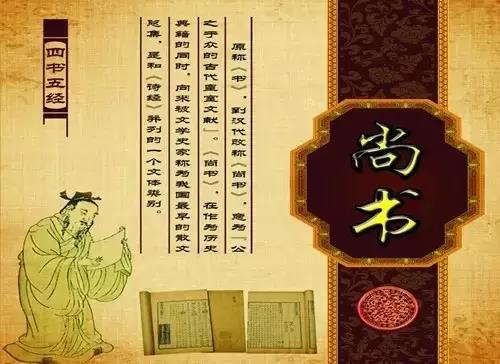 尚书
原称《书》,到汉代改称《尚书》,意为『公
之于众的古代皇室文献』。《尚书》,在作为历史
典籍的同时,向来被文学史家称为我国最早的散文
总集,是和《诗经》并列的一个文体类别。
【四书五经】